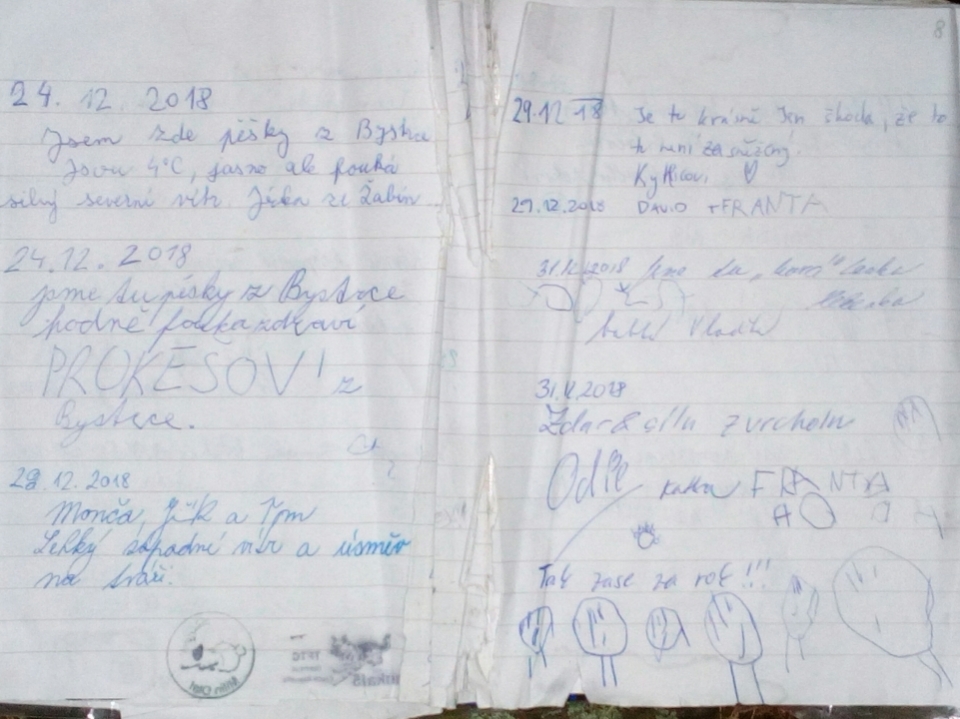 24. 12. 2018
Jsem zde pěšky z Bystřice
Jsou 4°C, jasno ale fouká
silný severní vítr. Jirka ze Žabin
24.12. 2018
jsme tu pěšky z Bystřice
hodně fouká zdraví
PROKEŠOVI z
Bystřice.
28.12. 2018
Monča, Jiřík a Tom
Lehký západní vítr a úsměv
na tváři.
8
29.12 18 Je tu krásně Jen škoda, že to
tu není zasněžený.
29.12.2018 DAVID + FRANTA
31.12.2018 Jsme tu
31.12.2018
Zdar & sílu z vrcholu
FRANTA
Tak zase za rok !!!